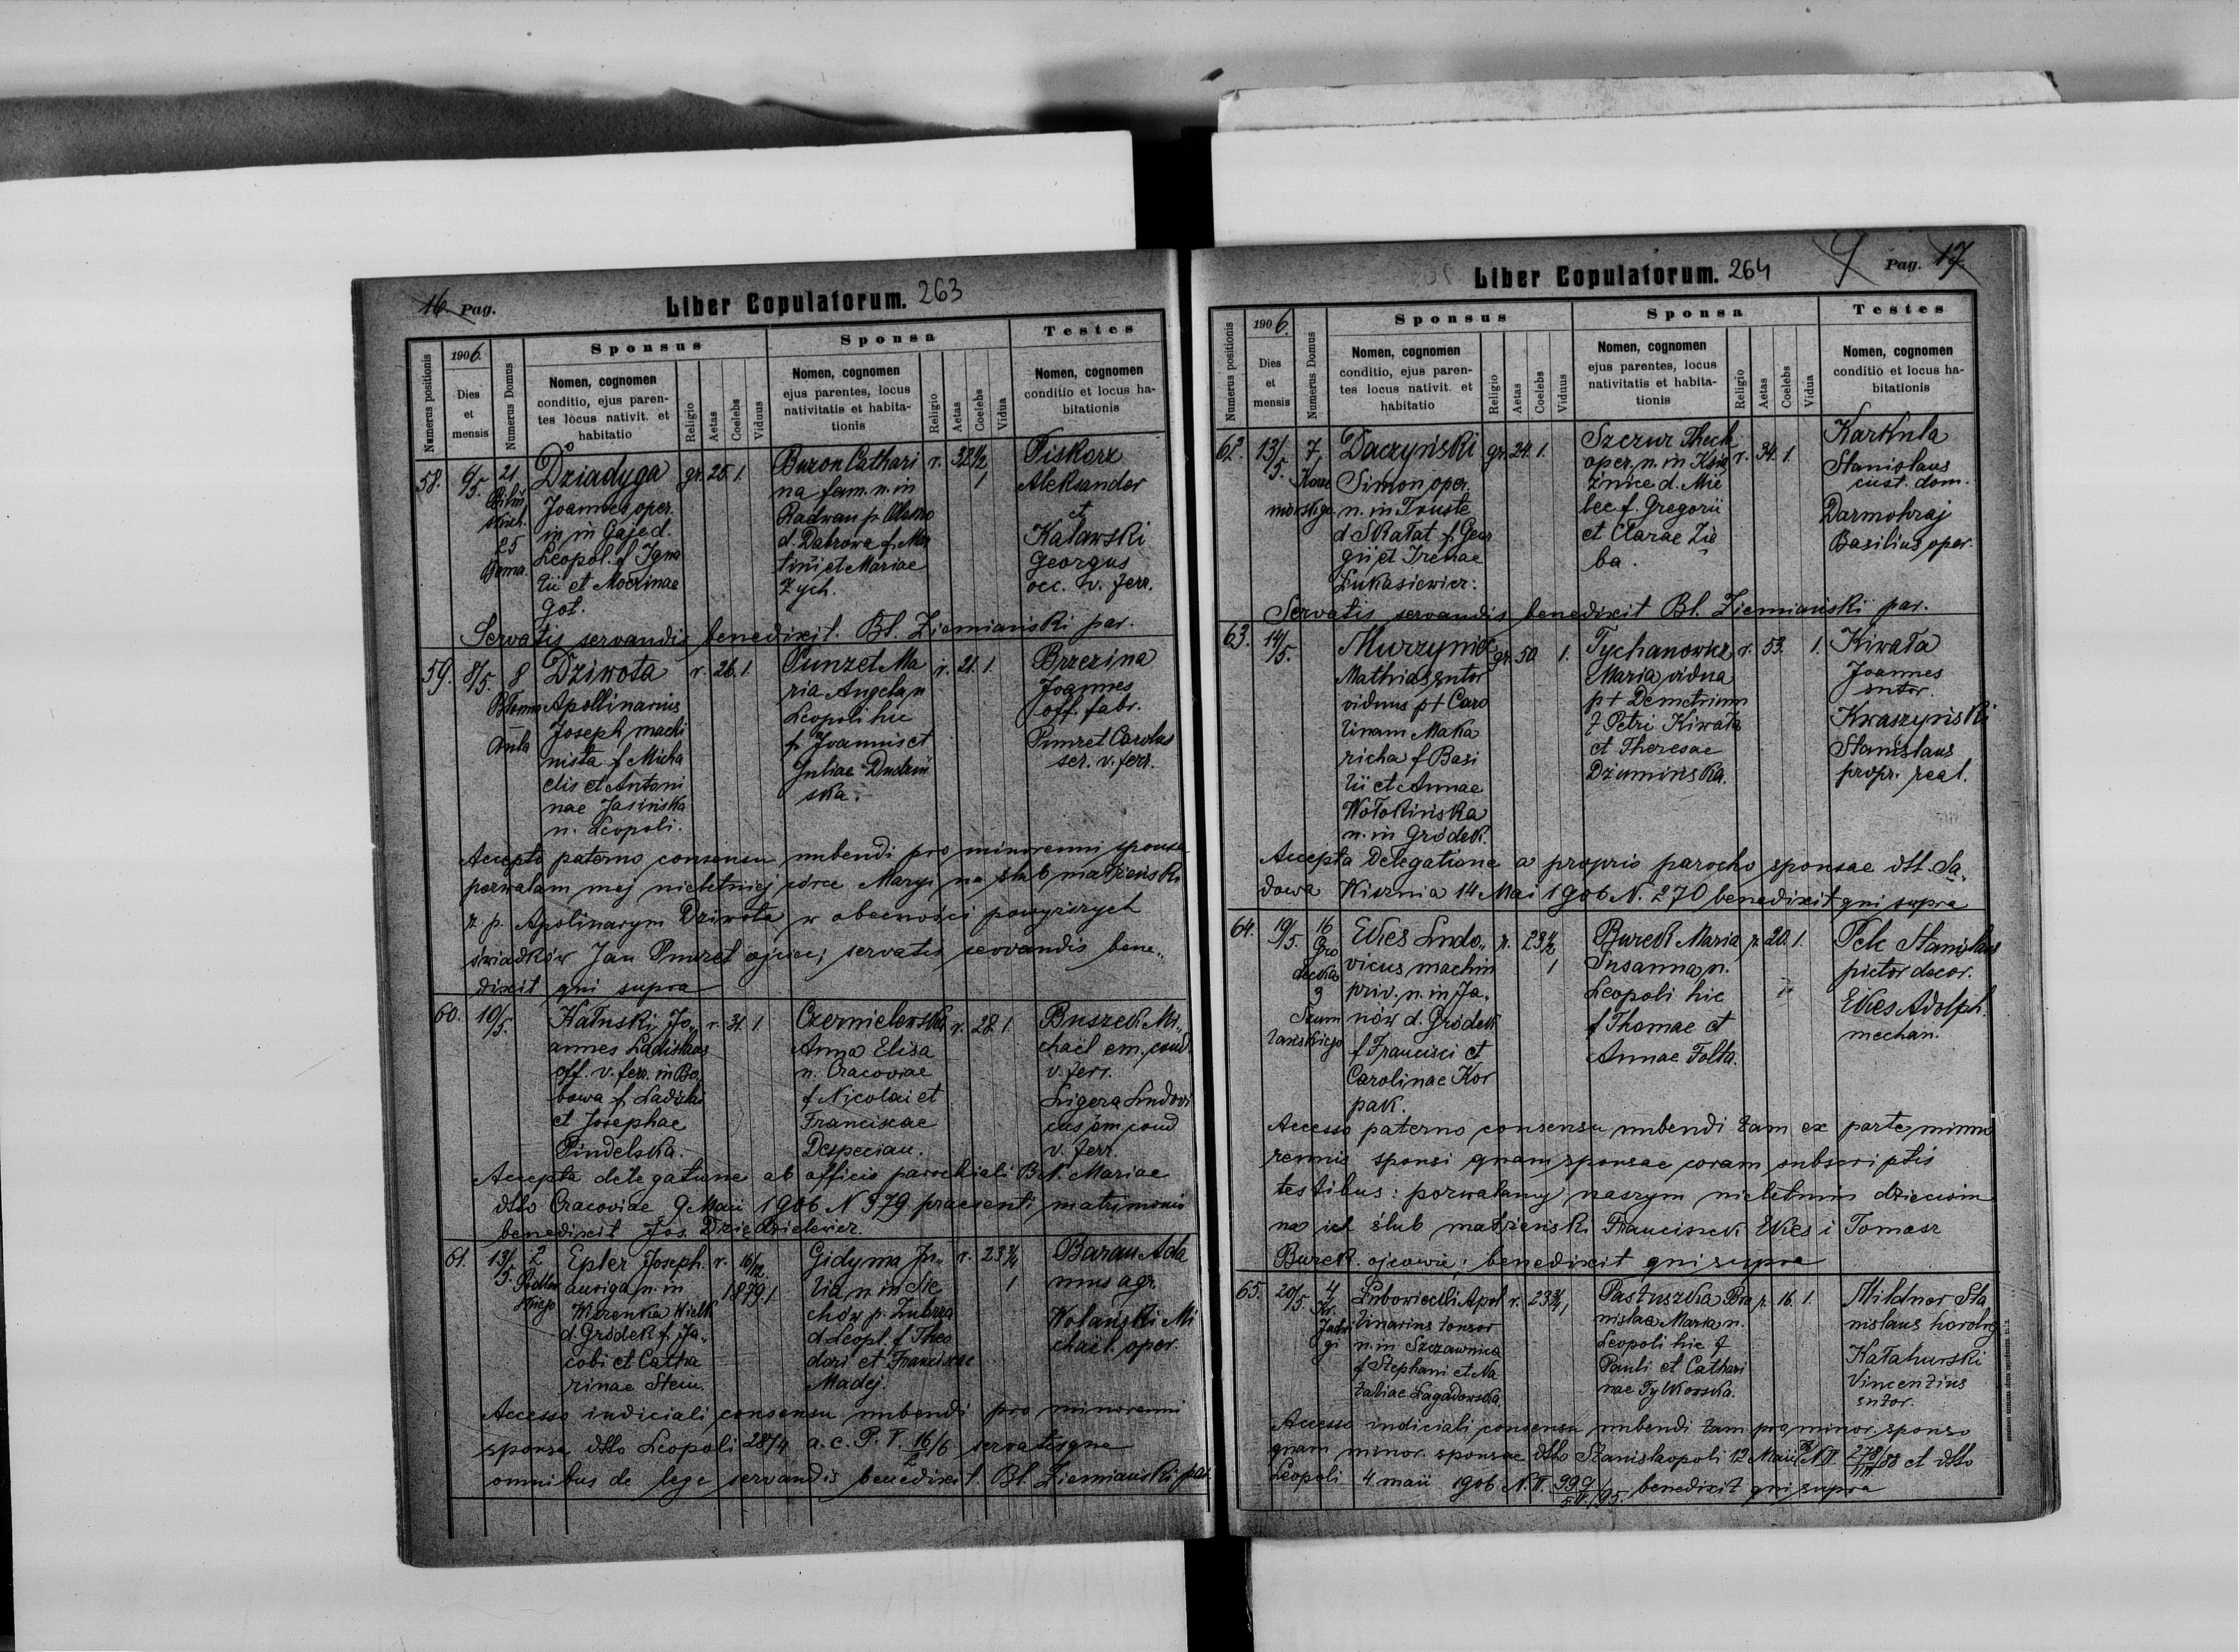 16. Pag.
Liber Copulatorum. 263
Numerus positionis
1906.
Dies et mensis
Numerus Domus
Sponsus
Nomen, cognomen
conditio, ejus paren-
tes locus nativit. et
habitatio
Religio
Aetas
Coelebs
Viduus
Sponsa
Nomen, cognomen
ejus parentes, locus
nativitatis et habita-
tionis
Religio
Aetas
Coelebs
Vidua
Testes
Nomen, cognomen
conditio et locus ha-
bitationis
58. 6/5. 21
25
Dziadyga
Joannes oper.
in Gaje d.
Leopol. f Igna
tii et
Got.
gr. 25. 1.
Buron Cathari
na fam. n. in
Radwan p.
d. Dabrowa f. Mar
tini et Mariae
Zych.
r. 32 1/2
1
Piskorz
Aleksander
et
Katawski
Georgus
occ. v. ferr.
Servatis servandis benedixit. Bl. Ziemiański par.
59. 8/5. 8
Dziwota
Apollinarius
Joseph machi
nista f Micha
elis et Antoni
nae Jasińska
n. Leopoli.
r. 26. 1.
Punzet Ma
ria Angela n
Leopoli hic
f Joannis et
Juliae
ska.
r. 21. 1.
Brzezina
Joannes
off. fabr.
Punzet Carolus
ser. v. ferr.
Accepto paterno consensu nubendi pro minorenni sponsa
pozwalam mej nieletniej córce Maryi na ślub małżeński
z p. Apolinarym Dziwota w obecności powyższych
świadków Jan Punzet ojciec; servatis servandis bene„
dixit qui supra
60. 10/5.
Kałuski Jo„
annes Ladislaus
off. v. ferr. in Bo„
bowa f. Ladislai
et Josephae
Pindelska.
r. 31. 1.
Czernielewska
Anna Elisa
n. Cracoviae
f Nicolai et
Franciscae
Despecian.
r. 28. 1.
Buszek Mi„
chaël em. cond.
v. ferr.
Ligera Ludovi
cus em. cond
v. ferr.
Accepta delegatione ab officio parochiali B.V. Mariae
dtto Cracoviae 9 Maii 1906 N 579 praesenti matrimonio
benedixit Jos. Dziędzielewicz.
61. 13/5. 2
Epler Joseph.
auriga n. in
Wielk
d. Gródek f. Ja„
cobi et Catha
rinae Stein.
r. 16/12.
1879 1
Gidyma Ju„
lia n in Sie
chów p. Zubrza
d. Leopl. f Theo
dori et Franciscae
Madej.
r. 23 3/4
1
Baran Ada
mus agr.
Wolański Mi
chaël. oper.
Accesso iudiciali consensu nubendi pro minorenni
sponsa dtto Leopoli 28/4 a. c. P. V. 16/6 servatisque
omnibus de lege servandis benedixit Bl. Ziemiański par.
Liber Copulatorum. 264
Pag. 17.
Numerus positionis
1906.
Dies
et
mensis
Numerus Domus
Sponsus
Nomen, cognomen
conditio, ejus paren-
tes locus nativit. et
habitatio
Religio
Aetas
Coelebs
Viduus
Sponsa
Nomen, cognomen
ejus parentes, locus
nativitatis et habita-
tionis
Religio
Aetas
Coelebs
Vidua
Testes
Nomen, cognomen
conditio et locus ha-
bitationis
62. 13/5. 7
Daczyński
Simon oper.
n. in Touste
d Skałat f. Geor
gii et Irenae
Łukasiewicz.
gr. 24. 1.
Szczur Thecla
oper. n. in Ksią
żnice d. Mie
lec f. Gregorii
et Clarae Zię
ba.
r. 34. 1.
Karkula
Stanislaus
cust. dom.
Darmohraj
Basilius oper.
Servatis servandis benedixit Bl. Ziemiański par.
63. 14/5.
Murzyniec
Mathias sutor
viduus p+ Caro
linam Maka
richa f Basi
lii et Annae
Wołokińska
n. in Gródek.
gr. 50. 1.
Tychanowicz
Maria vidua
p+ Demetrium
f Petri Kiwała
et Theresae
Dżumińska.
r. 53. 1.
Kiwała
Joannes
sutor.
Kwaszyński
Stanislaus
propr. real.
Accepta delegatione a proprio parocho sponsae dtt. Sa„
dowa Wisznia 14 Mai 1906 N. 270 benedixit qui supra
64. 19/5. 16
Gro
decka
3
Szum
lańskiego
Ekes Ludo„
vicus machin
priv. n. in Ja„
nów d. Gródek
f Francisci et
Carolinae Kor
pak.
r. 23 1/2
1
Burek Maria
Susanna n.
Leopoli hic
f Thomae et
Annae Folta.
r. 20. 1.
Pelc Stanislaus
pictor decor.
Ekes Adolph.
mechan.
Accesso paterno consensu nubendi tam ex parte mino
rennis sponsi quam sponsae coram subscriptis
testibus: pozwalamy naszym nieletnim dzieciom
na ich ślub małżeński Franciszek Ekes i Tomasz
Burek ojcowie; benedixit qui supra
65. 20/5. 4
Kr.
Jadwi
gi
Lubowiecki Apol
linarius tonsor
n. in Szczawnica
f Stephani et Na
taliae Łagadowska
r. 23 3/4 1
Pastuszka Bro
nislaa Maria n.
Leopoli hic f
Pauli et Cathari
nae Tylkowska.
r. 16. 1.
Mildner Sta
nislaus horolog
Katahurski
Vincentius
sutor.
Accesso iudiciali consensu nubendi tam pro minor. sponso
quam minor. sponsae dtto Stanislaopoli 12 Maii N. II. 278/88 et dtto
Leopoli 4 maii 1906 N. II. 999/95. benedixit qui supra